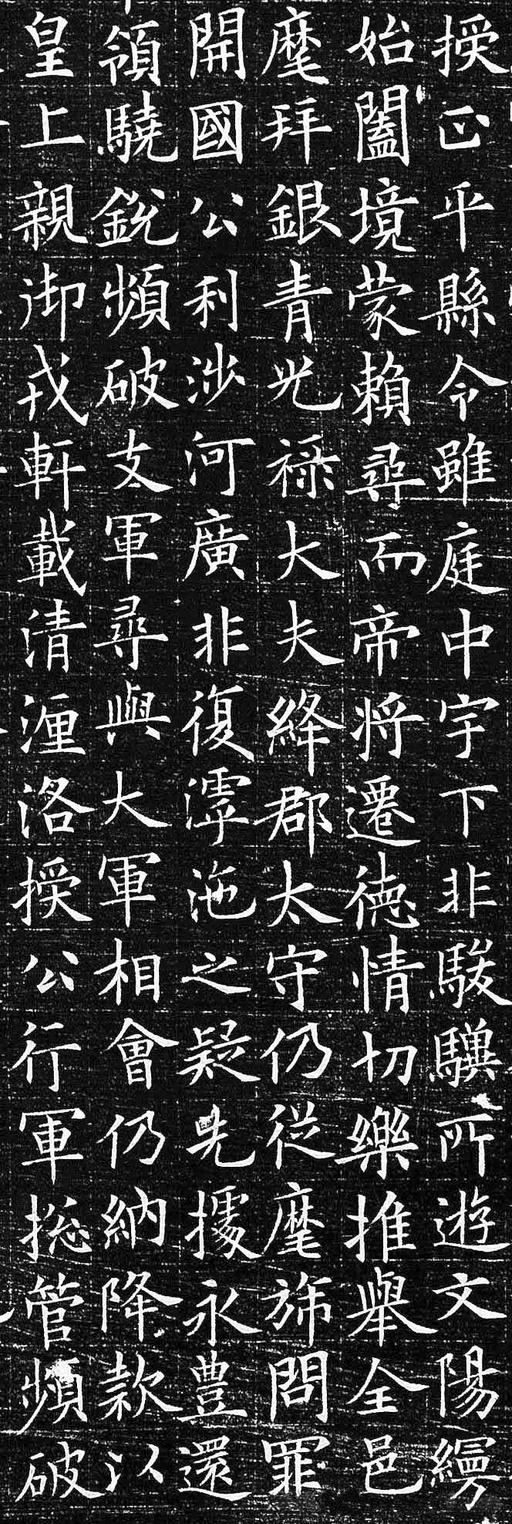 授正平縣令雖庭中宇下非駿驥所遊文陽縵
始闔境蒙賴尋而帝將遷德情切樂推舉全邑
麾拜銀青光祿大夫絳郡太守仍從麾旆問罪
開國公利涉河廣非復滹沲之疑先據永豐還
領驍銳頻破支軍尋與大軍相會仍納降款以
皇上親御戎軒載清瀍洛授公行軍摠管頻破